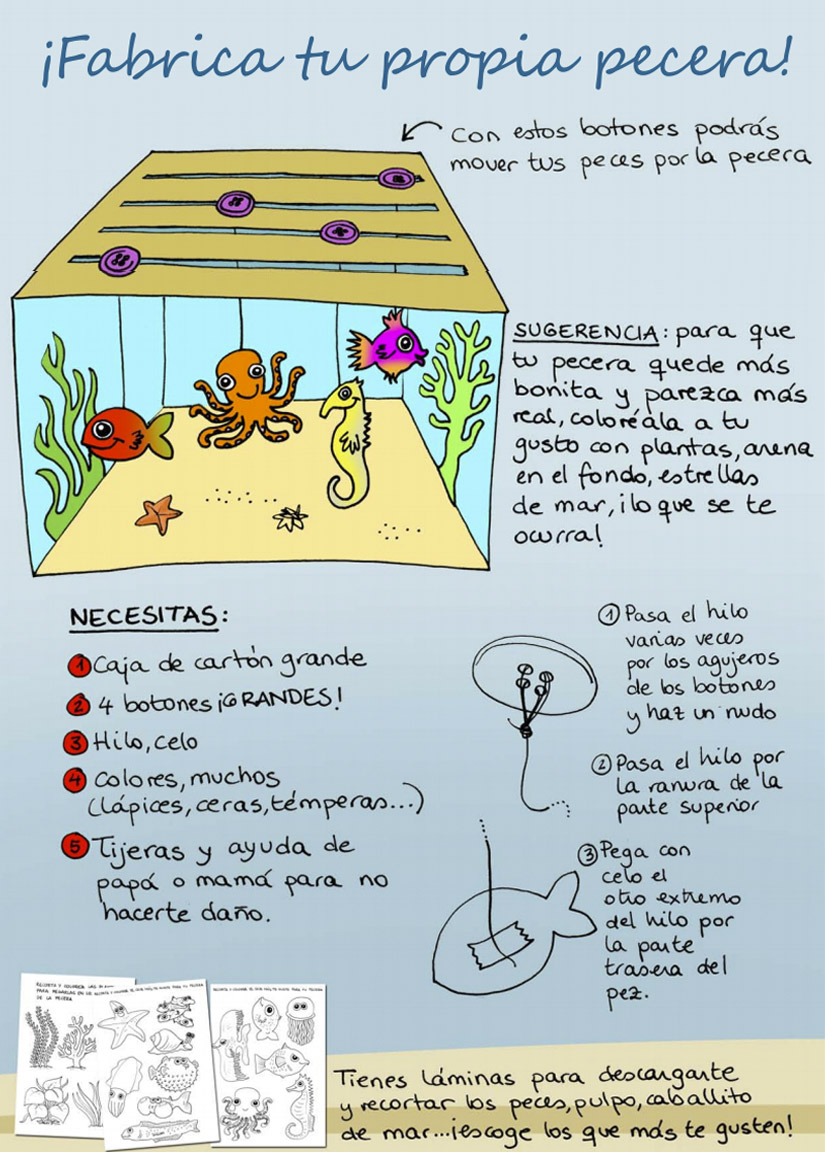 ¡Fabrica tu propia pecera!
Con estos botones podrás
mover tus peces por la pecera
SUGERENCIA: para que
tu pecera quede más
bonita y parezca más
real, coloréala a tu
gusto con plantas, arena
en el fondo, estrellas
de mar, ¡lo que se te
ocurra!
NECESITAS:
1 Caja de cartón grande
2 4 botones ¡GRANDES!
3 Hilo, celo
4 Colores, muchos
(lápices, ceras, témperas...)
5 Tijeras y ayuda de
papá o mamá para no
hacerte daño.
1 Pasa el hilo
varias veces
por los agujeros
de los botones
y haz un nudo
2 Pasa el hilo por
la ranura de la
parte superior
3 Pega con
celo el
otro extremo
del hilo por
la parte
trasera del
pez.
RECORTA Y COLOREA LAS
PARA PEGARLAS EN
DE LA PECERA
Tienes láminas para descargarte
y recortar los peces, pulpo, caballito
de mar... ¡escoge los que más te gusten!